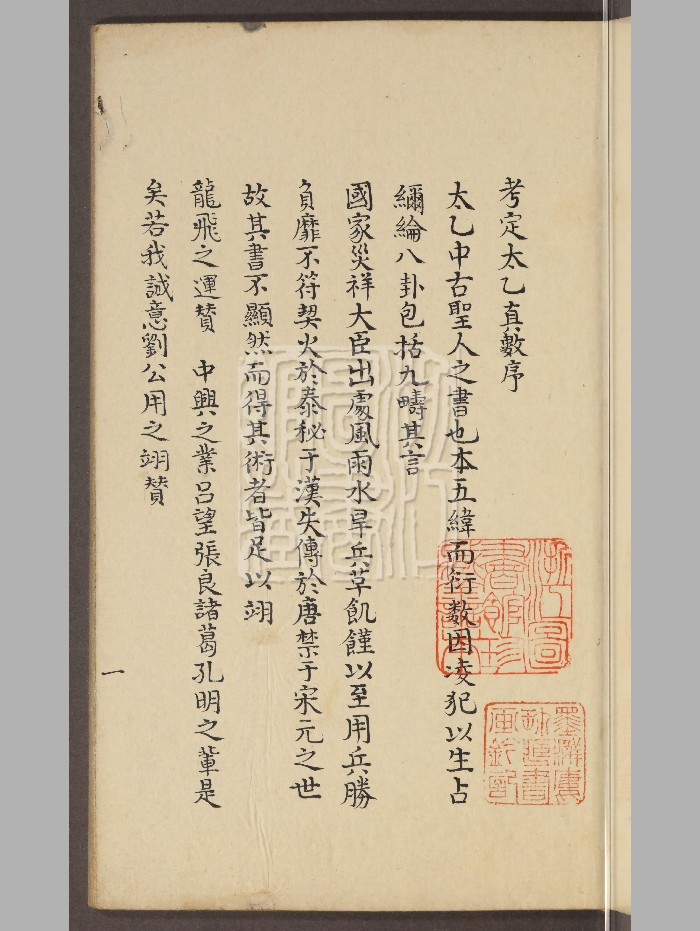 考定太乙真數序
太乙中古聖人之書也本五緯而衍数因凌犯以生占
彌綸八卦包括九疇其言
國家災祥大臣出處風雨水旱兵草飢饉以至用兵勝
負靡不符契火於秦秘于漢失傳於唐禁于宋元之世
故其書不顯然而得其術者皆足以翊
龍飛之運賛　中興之業吕望張良諸葛孔明之軰是
矣若我誠意劉公用之翊賛
一